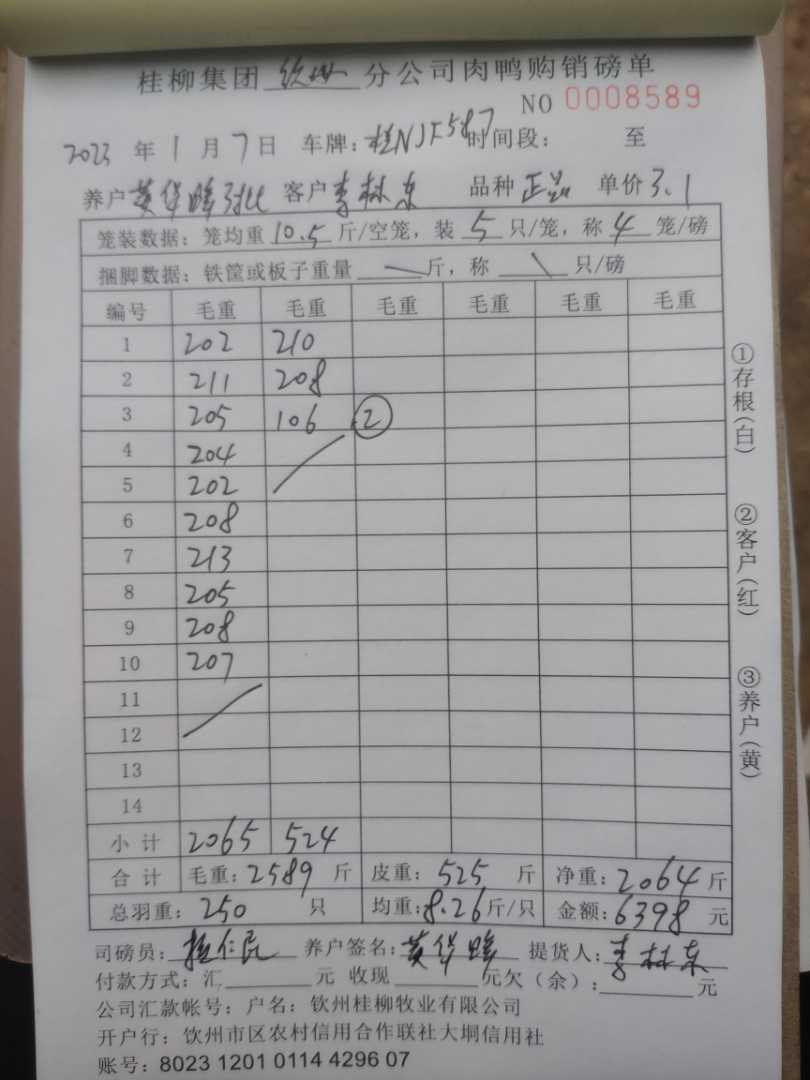 桂柳集团 钦州 分公司肉鸭购销磅单
NO 0008589
2023 年 1 月 7 日 车牌: 桂NJF587 时间段: 至
养户 黄华峰 客户 李林东 品种 正品 单价 3.1
笼装数据: 笼均重 10.5 斤/空笼, 装 5 只/笼, 称 4 笼/磅
捆脚数据: 铁筐或板子重量 斤, 称 只/磅
编号 毛重 毛重 毛重 毛重 毛重 毛重
1 202 210
2 211 208
3 205 106 ②
4 204
5 202
6 208
7 213
8 205
9 208
10 207
11
12
13
14
小计 2065 524
合计 毛重: 2589 斤 皮重: 525 斤 净重: 2064 斤
总羽重: 250 只 均重: 8.26 斤/只 金额: 6398 元
司磅员: 养户签名: 黄华峰 提货人: 李林东
付款方式: 汇 元 收现 元欠(余): 元
公司汇款帐号: 户名: 钦州桂柳牧业有限公司
开户行: 钦州市区农村信用合作联社大垌信用社
账号: 8023 1201 0114 4296 07
①存根(白)
②客户(红)
③养户(黄)